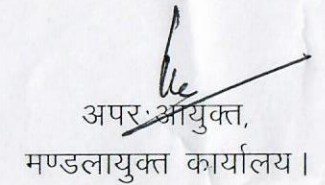 अपर आयुक्त,
मण्डलायुक्त कार्यालय।